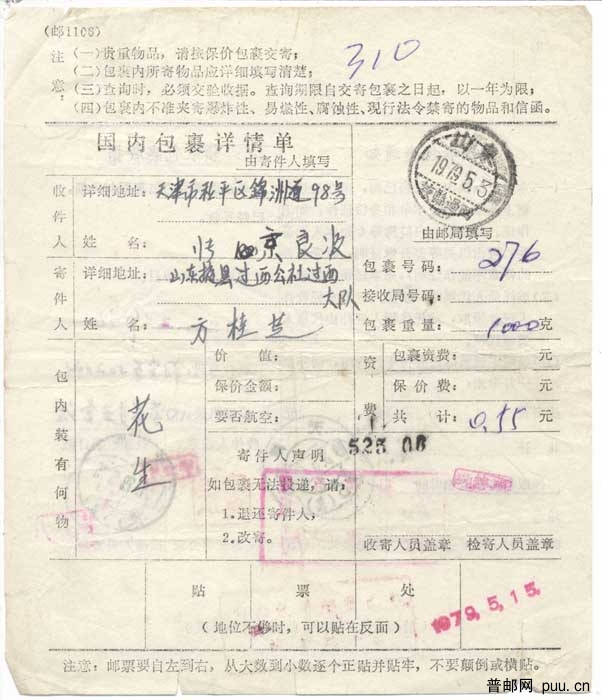 (邮1108)
310
注意：
(一)贵重物品，请按保价包裹交寄；
(二)包裹内所寄物品应详细填写清楚；
(三)查询时，必须交验收据。查询期限自交寄包裹之日起，以一年为限；
(四)包裹内不准夹寄爆炸性、易燃性、腐蚀性、现行法令禁寄的物品和信函。
国内包裹详情单
由寄件人填写
山东
1979.5.3
由邮局填写
收件人
详细地址：天津市和平区锦州道98号
姓名：京良波
寄件人
详细地址：山东掖县过西公社过西
大队
姓名：方桂芝
包裹号码：276
接收局号码：
包裹重量：1000克
包内装有何物
花生
价值：元
保价金额：元
要否航空：
资费
包裹资费：元
保价费：元
共计：0.55元
525 06
寄件人声明
如包裹无法投递，请：
1.退还寄件人；
2.改寄。
收寄人员盖章
检寄人员盖章
贴票处
(地位不够时，可以贴在反面)
1979.5.15.
注意：邮票要自左到右，从大数到小数逐个正贴并贴牢，不要颠倒或横贴。
普邮网 puu.cn